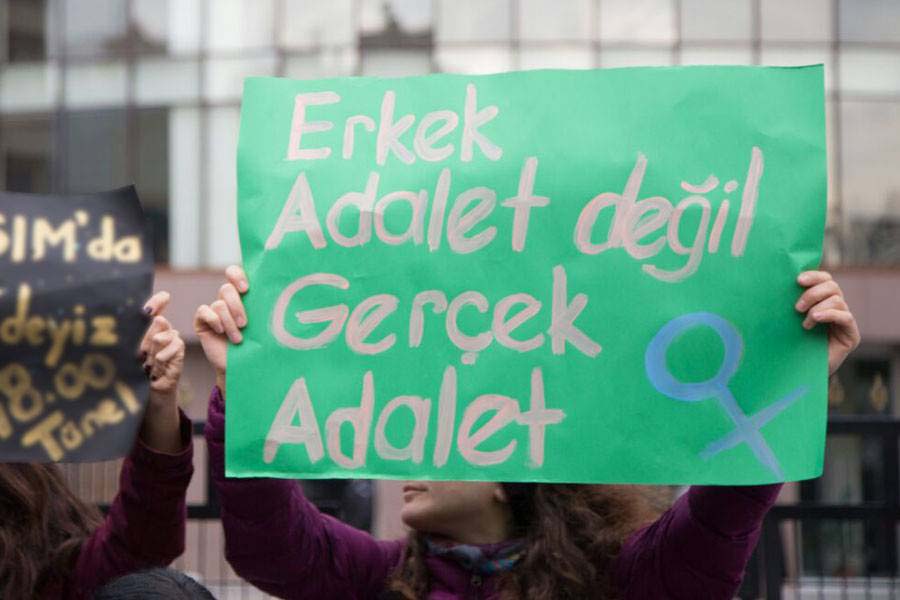 Erkek
Adalet değil
Gerçek
Adalet
SIM'da
deyiz
18.00
Tünel